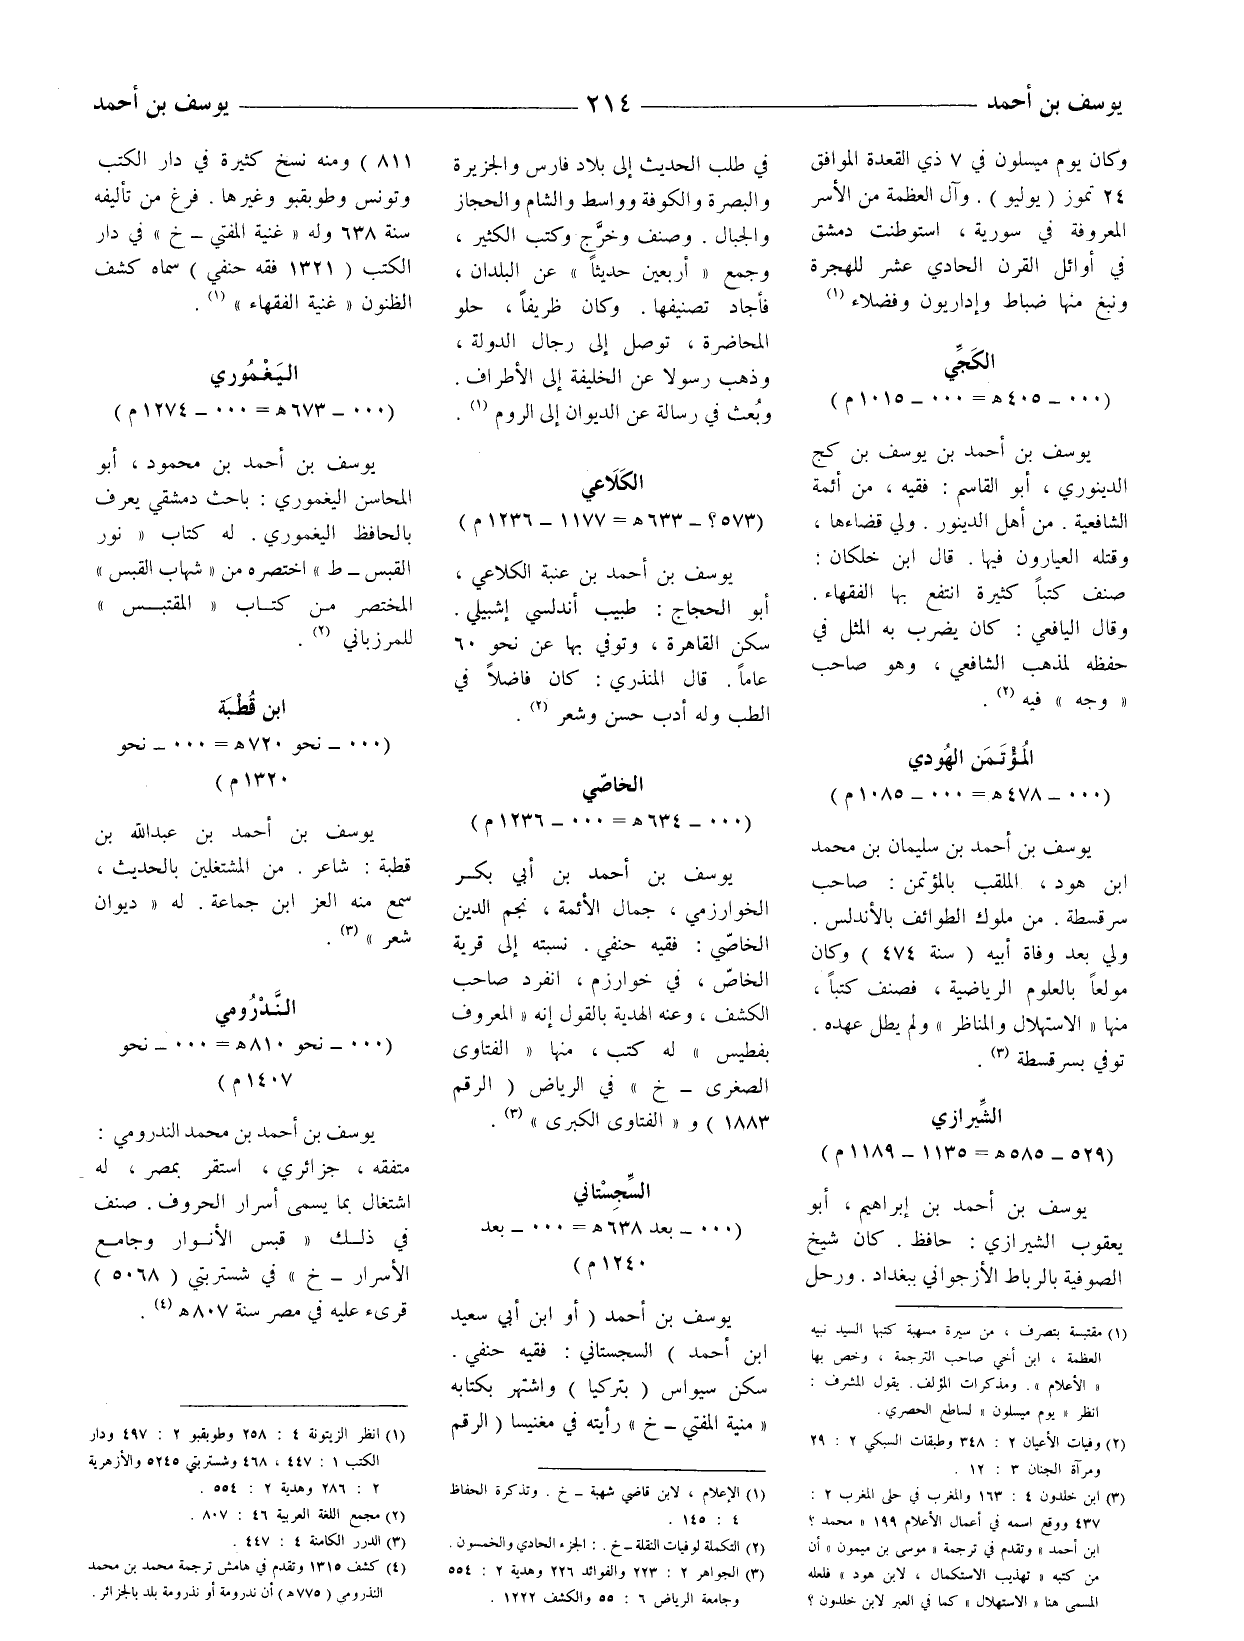 يوسف بن أحمد ــــــ ٢١٤ ــــــ يوسف بن أحمد
وكان يوم ميسلون في ٧ ذي القعدة الموافق
٢٤ تموز ( يوليو ) . وآل العظمة من الأسر
المعروفة في سورية ، استوطنت دمشق
في أوائل القرن الحادي عشر للهجرة
ونبغ منها ضباط وإداريون وفضلاء (١)
الكَجِّي
(٠٠٠ ــ ٤٠٥ هـ = ٠٠٠ ــ ١٠١٥ م)
يوسف بن أحمد بن يوسف بن كج
الدينوري ، أبو القاسم : فقيه ، من أئمة
الشافعية . من أهل الدينور . ولي قضاءها ،
وقتله العيارون فيها . قال ابن خلكان :
صنف كتباً كثيرة انتفع بها الفقهاء .
وقال اليافعي : كان يضرب به المثل في
حفظه لمذهب الشافعي ، وهو صاحب
« وجه » فيه (٢) .
المُؤْتَمَن الهُودي
(٠٠٠ ــ ٤٧٨ هـ = ٠٠٠ ــ ١٠٨٥ م)
يوسف بن أحمد بن سليمان بن محمد
ابن هود ، الملقب بالمؤتمن : صاحب
سرقسطة . من ملوك الطوائف بالأندلس .
ولي بعد وفاة أبيه ( سنة ٤٧٤ ) وكان
مولعاً بالعلوم الرياضية ، فصنف كتباً ،
منها « الاستهلال والمناظر » ولم يطل عهده .
توفي بسرقسطة (٣) .
الشِّيرازي
(٥٢٩ ــ ٥٨٥ هـ = ١١٣٥ ــ ١١٨٩ م)
يوسف بن أحمد بن إبراهيم ، أبو
يعقوب الشيرازي : حافظ . كان شيخ
الصوفية بالرباط الأزجواني ببغداد . ورحل
(١) مقتبسة بتصرف ، من سيرة مسهبة كتبها السيد نبيه
العظمة ، ابن أخي صاحب الترجمة ، وخص بها
« الأعلام » . ومذكرات المؤلف . يقول المشرف :
انظر « يوم ميسلون » لساطع الحصري .
(٢) وفيات الأعيان ٢ : ٣٤٨ وطبقات السبكي ٢ : ٢٩
ومرآة الجنان ٣ : ١٢ .
(٣) ابن خلدون ٤ : ١٦٣ والمغرب في حلى المغرب ٢ :
٤٣٧ ووقع اسمه في أعمال الأعلام ١٩٩ « محمد ؟
ابن أحمد » وتقدم في ترجمة « موسى بن ميمون » أن
من كتبه « تهذيب الاستكمال ، لابن هود » فلعله
المسمى هنا « الاستهلال » كما في العبر لابن خلدون ؟
في طلب الحديث إلى بلاد فارس والجزيرة
والبصرة والكوفة وواسط والشام والحجاز
والجبال . وصنف وخرَّج وكتب الكثير ،
وجمع « أربعين حديثاً » عن البلدان ،
فأجاد تصنيفها . وكان ظريفاً ، حلو
المحاضرة ، توصل إلى رجال الدولة ،
وذهب رسولا عن الخليفة إلى الأطراف .
وبُعث في رسالة عن الديوان إلى الروم (١) .
الكَلَاعي
(٥٧٣؟ ــ ٦٣٣ هـ = ١١٧٧ ــ ١٢٣٦ م)
يوسف بن أحمد بن عنبة الكلاعي ،
أبو الحجاج : طبيب أندلسي إشبيلي .
سكن القاهرة ، وتوفي بها عن نحو ٦٠
عاماً . قال المنذري : كان فاضلاً في
الطب وله أدب حسن وشعر (٢) .
الخاصّي
(٠٠٠ ــ ٦٣٤ هـ = ٠٠٠ ــ ١٢٣٦ م)
يوسف بن أحمد بن أبي بكر
الخوارزمي ، جمال الأئمة ، نجم الدين
الخاصّي : فقيه حنفي . نسبته إلى قرية
الخاصّ ، في خوارزم ، انفرد صاحب
الكشف ، وعنه الهدية بالقول إنه « المعروف
بفطيس » له كتب ، منها « الفتاوى
الصغرى ــ خ » في الرياض ( الرقم
١٨٨٣ ) و « الفتاوى الكبرى » (٣) .
السِّجِسْتاني
(٠٠٠ ــ بعد ٦٣٨ هـ = ٠٠٠ ــ بعد
١٢٤٠ م)
يوسف بن أحمد ( أو ابن أبي سعيد
ابن أحمد ) السجستاني : فقيه حنفي .
سكن سيواس ( بتركيا ) واشتهر بكتابه
« منية المفتي ــ خ » رأيته في مغنيسا ( الرقم
(١) الإعلام ، لابن قاضي شهبة ــ خ . وتذكرة الحفاظ
٤ : ١٤٥ .
(٢) التكملة لوفيات النقلة ــ خ . : الجزء الحادي والخمسون .
(٣) الجواهر ٢ : ٢٢٣ والفوائد ٢٢٦ وهدية ٢ : ٥٥٤
وجامعة الرياض ٦ : ٥٥ والكشف ١٢٢٢ .
٨١١ ) ومنه نسخ كثيرة في دار الكتب
وتونس وطوبقبو وغيرها . فرغ من تأليفه
سنة ٦٣٨ وله « غنية المفتي ــ خ » في دار
الكتب ( ١٣٢١ فقه حنفي ) سماه كشف
الظنون « غنية الفقهاء » (١) .
اليَغْمُوري
(٠٠٠ ــ ٦٧٣ هـ = ٠٠٠ ــ ١٢٧٤ م)
يوسف بن أحمد بن محمود ، أبو
المحاسن اليغموري : باحث دمشقي يعرف
بالحافظ اليغموري . له كتاب « نور
القبس ــ ط » اختصره من « شهاب القبس »
المختصر من كتاب « المقتبس »
للمرزباني (٢) .
ابن قُطْبَة
(٠٠٠ ــ نحو ٧٢٠ هـ = ٠٠٠ ــ نحو
١٣٢٠ م)
يوسف بن أحمد بن عبدالله بن
قطبة : شاعر . من المشتغلين بالحديث ،
سمع منه العز ابن جماعة . له « ديوان
شعر » (٣) .
النَّدْرُومي
(٠٠٠ ــ نحو ٨١٠ هـ = ٠٠٠ ــ نحو
١٤٠٧ م)
يوسف بن أحمد بن محمد الندرومي :
متفقه ، جزائري ، استقر بمصر ، له
اشتغال بما يسمى أسرار الحروف . صنف
في ذلك « قبس الأنوار وجامع
الأسرار ــ خ » في شستربتي ( ٥٠٦٨ )
قرىء عليه في مصر سنة ٨٠٧ هـ (٤) .
(١) انظر الزيتونة ٤ : ٢٥٨ وطوبقبو ٢ : ٤٩٧ ودار
الكتب ١ : ٤٤٧ ، ٤٦٨ وشستربتي ٥٢٤٥ والأزهرية
٢ : ٢٨٦ وهدية ٢ : ٥٥٤ .
(٢) مجمع اللغة العربية ٤٦ : ٨٠٧ .
(٣) الدرر الكامنة ٤ : ٤٤٧ .
(٤) كشف ١٣١٥ وتقدم في هامش ترجمة محمد بن محمد
النذرومي ( ٧٧٥ هـ) أن ندرومة أو نذرومة بلد بالجزائر .